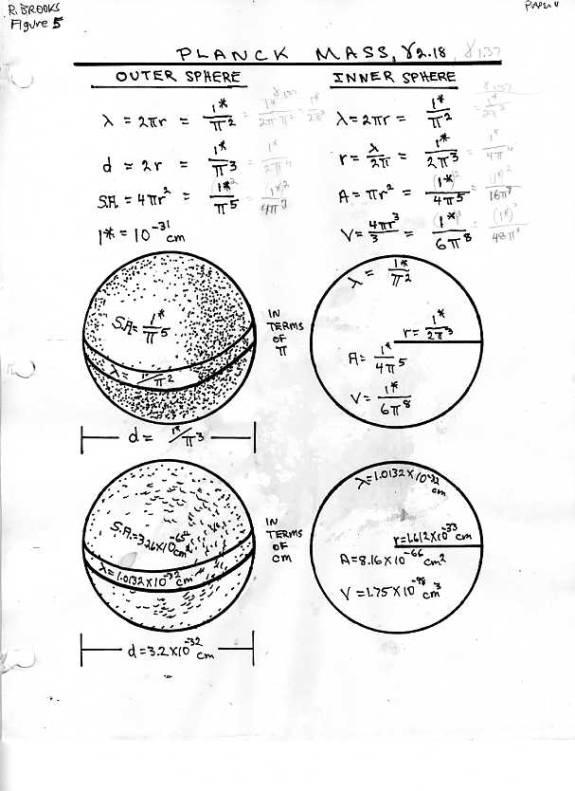 R. BROOKS
Figure 5
PLANCK MASS, γ2.18 γ1.37
OUTER SPHERE
λ = 2πr = 1*/π2
d = 2r = 1*/π3
S.A. = 4πr2 = (1*)2/π5
1* = 10-31 cm
INNER SPHERE
λ = 2πr = 1*/π2
r = λ/2π = 1*/2π3
A = πr2 = (1*)2/4π5
V = 4πr3/3 = (1*)3/6π8
S.A. = 1*/π5
λ = 1*/π2
d = 1*/π3
IN
TERMS
OF
π
λ = 1*/π2
r = 1*/2π3
A = 1*/4π5
V = 1*/6π8
λ = 1.0132 X 10-32 cm
d = 3.2 X 10-32 cm
IN
TERMS
OF
cm
λ = 1.0132 X 10-32 cm
r = 1.612 X 10-33 cm
A = 8.16 X 10-66 cm2
V = 1.75 X 10-98 cm3